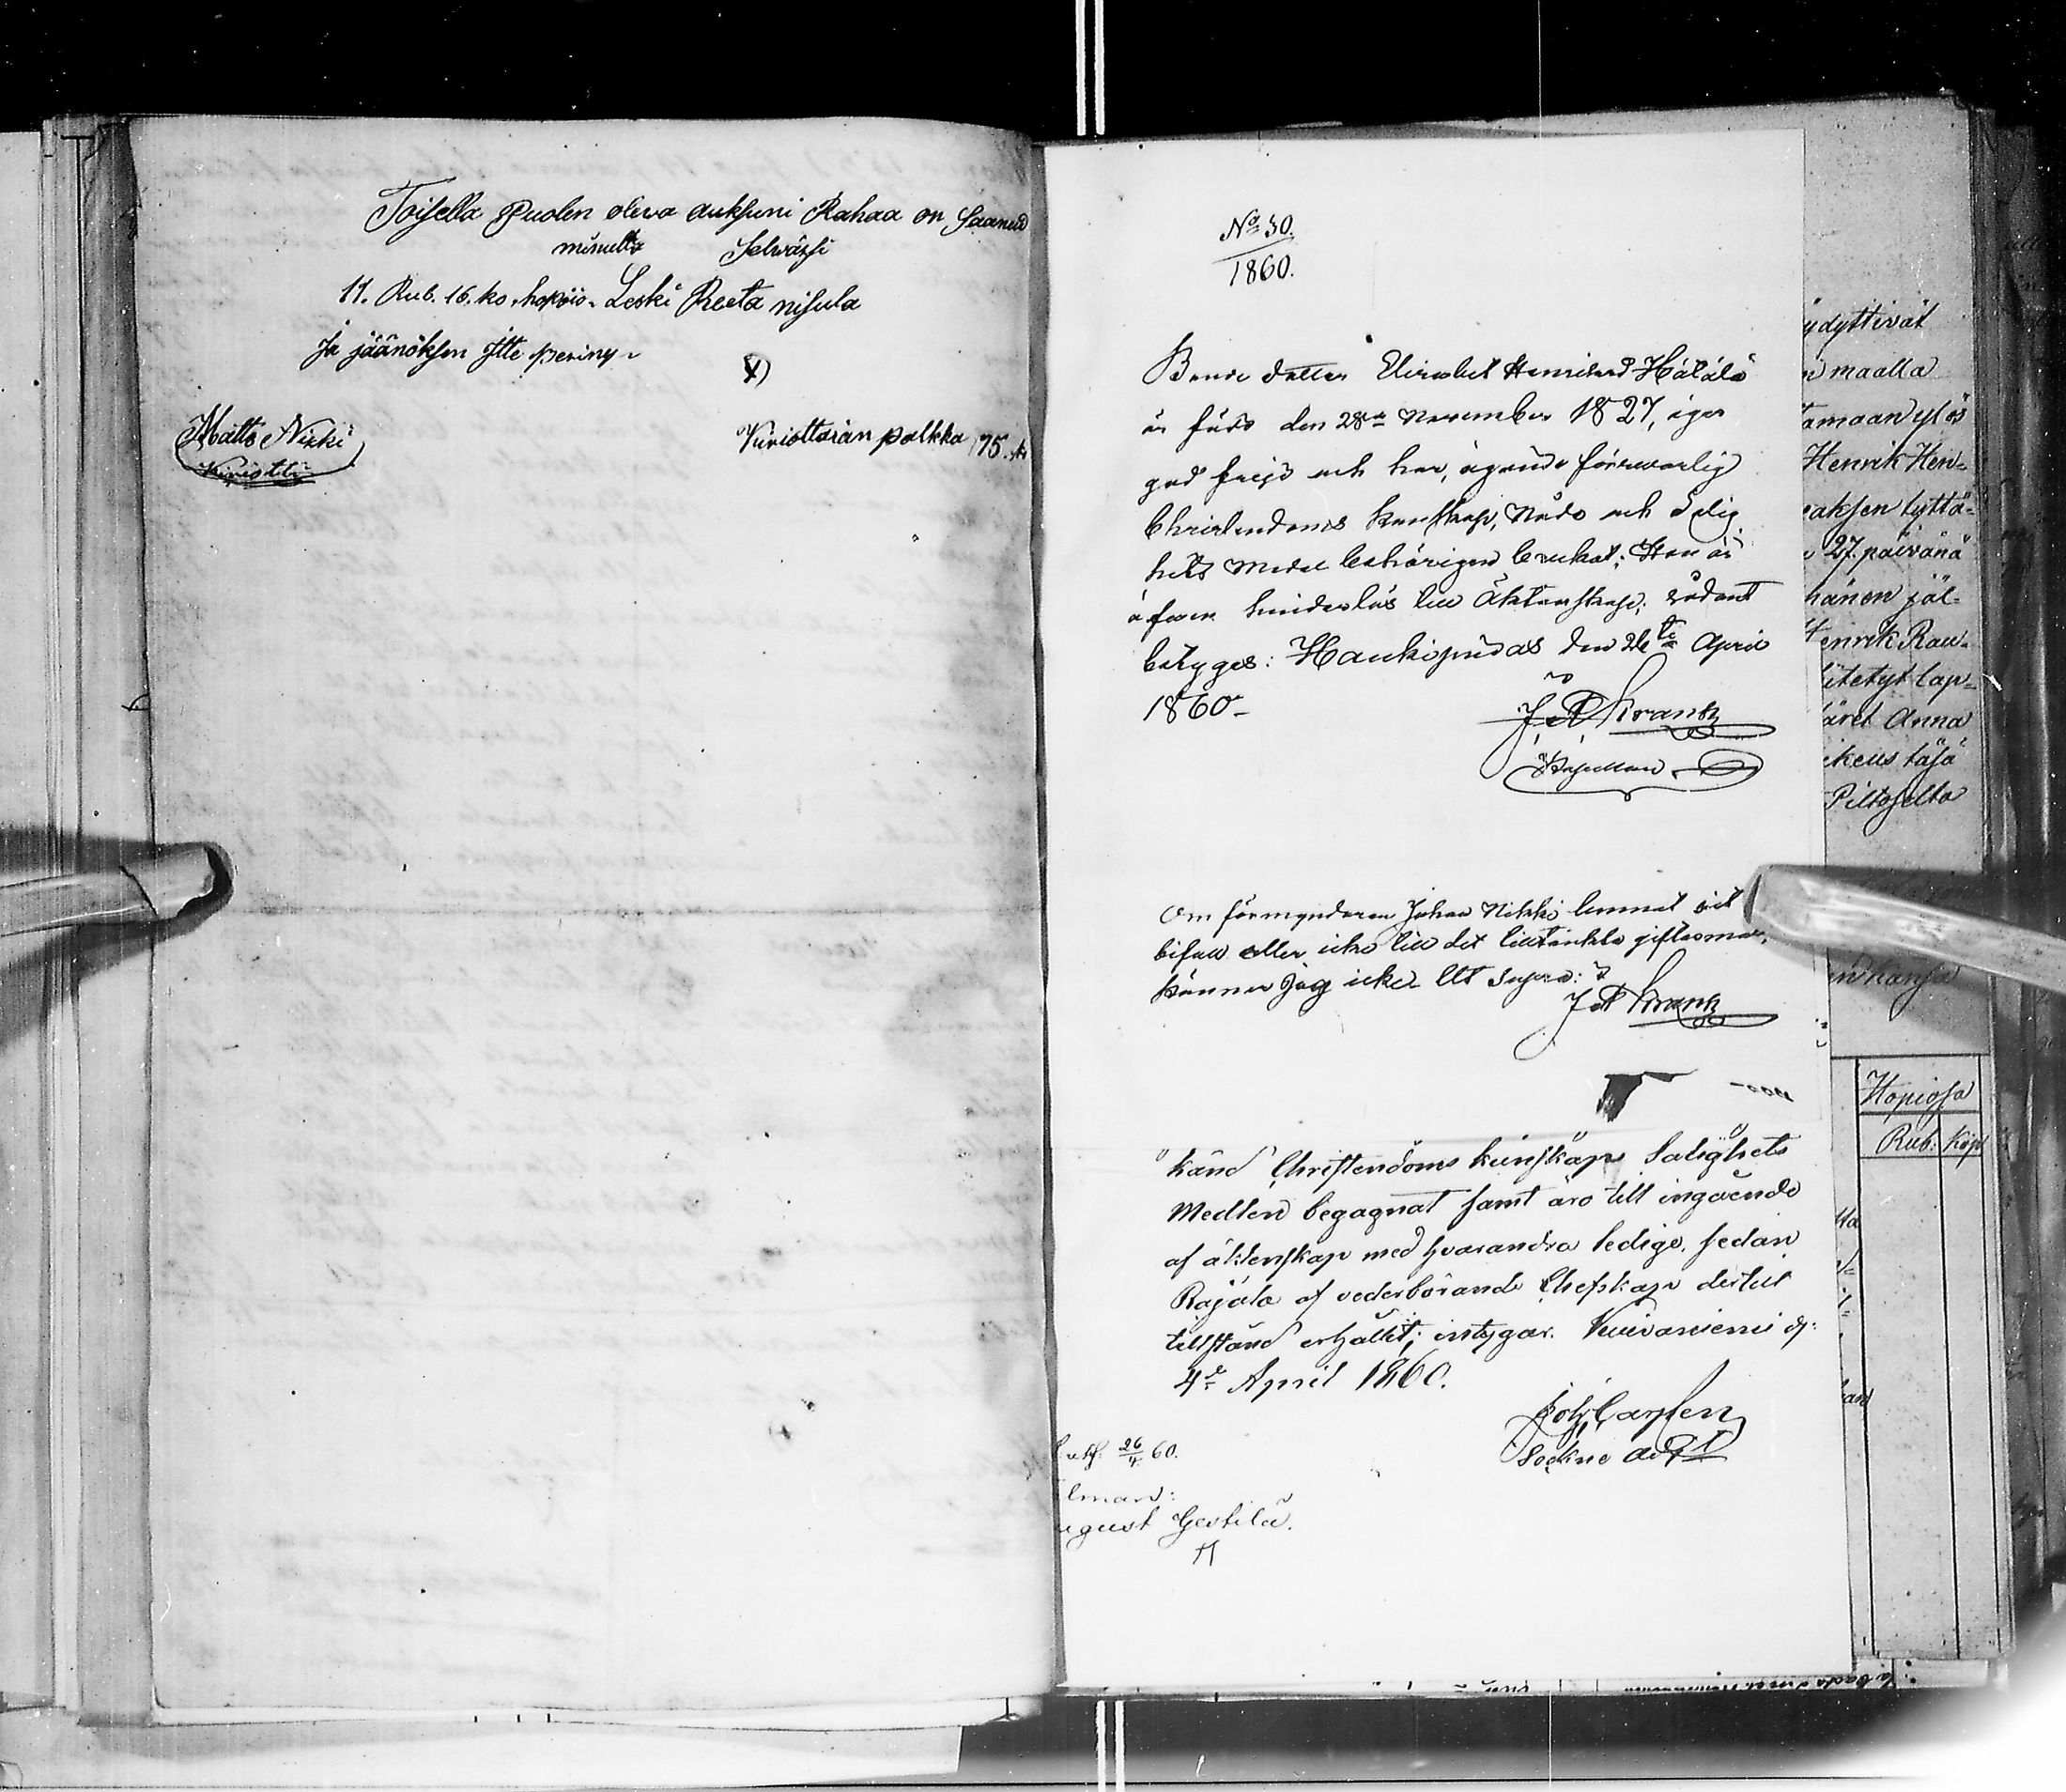 Toisella Puolen oleva auksuni Rahaa on Saanud
minulta Selwäzsi
11. Rub. 16. ko. hopiio. Leski Reeta nisula
Ja jäänöksen Itte periny
Matts Nikki
Kiriottaian palkka 75. k
No 30.
1860.
Bonde dotter Elisabet Henriksd Hätälä
är född den 28de November 1827, äger
god frejd och har, ägande försvarlig
Christendoms kunskap, Nåde och Salig
hets Medel behörigen brukat; Hon är
äfven hinderlös till Äktenskap; sådant
betyges: Haukipudas den 26te April
1860
J A Krank
Kapellan
Om förmyndaren Johan Nikki lemnat sit
bifall eller icke till det tilltänkta giftermål,
känner jag icke Ut supra:
J A Krank
känd Christendoms kunskap Salighets
Medlen begagnat samt äro till ingående
af äktenskap med hvarandra ledige, sedan
Rajala af vederbörande Chefskap dertill
tillstånd erhållit; intygar. Kuivaniemi d:
4de April 1860.
Joh Carlsen
Sockne adjt
26/4 60.
lman:
ugust Gertilä.
ydyttivät
maalla
tamaan ylös
Henrik Hen=
aksen tyttä=
27. päivänä
hänen jäl=
Henrik Rau=
itetyt lap=
äret Anna
ikeus täsä
Piltaselta
Hopiosa
Rub: Kop